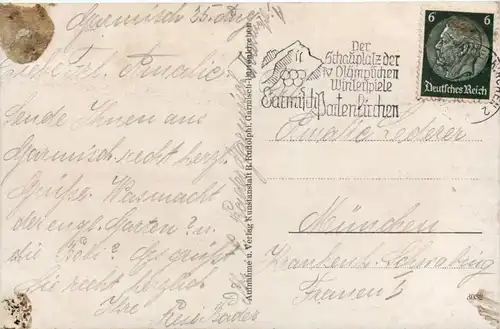 Garmisch 25. Aug.
Liebe Frl. Amalie
Sende Ihnen aus
Garmisch recht herzl.
Grüße. Was macht
der engl. Garten? u.
die Rebi? Es grüßt
Sie recht herzlich
Ihre
Resi Bader
Aufnahme u. Verlag Kunstanstalt B. Rudolphi, Garmisch-Partenkirchen
Der
Schauplatz der
IV. Olympischen
Winterspiele
Garmisch-Partenkirchen
6 6
Deutsches Reich
Amalie Lederer
München
Krankenh. Schwabing
Frauen 5